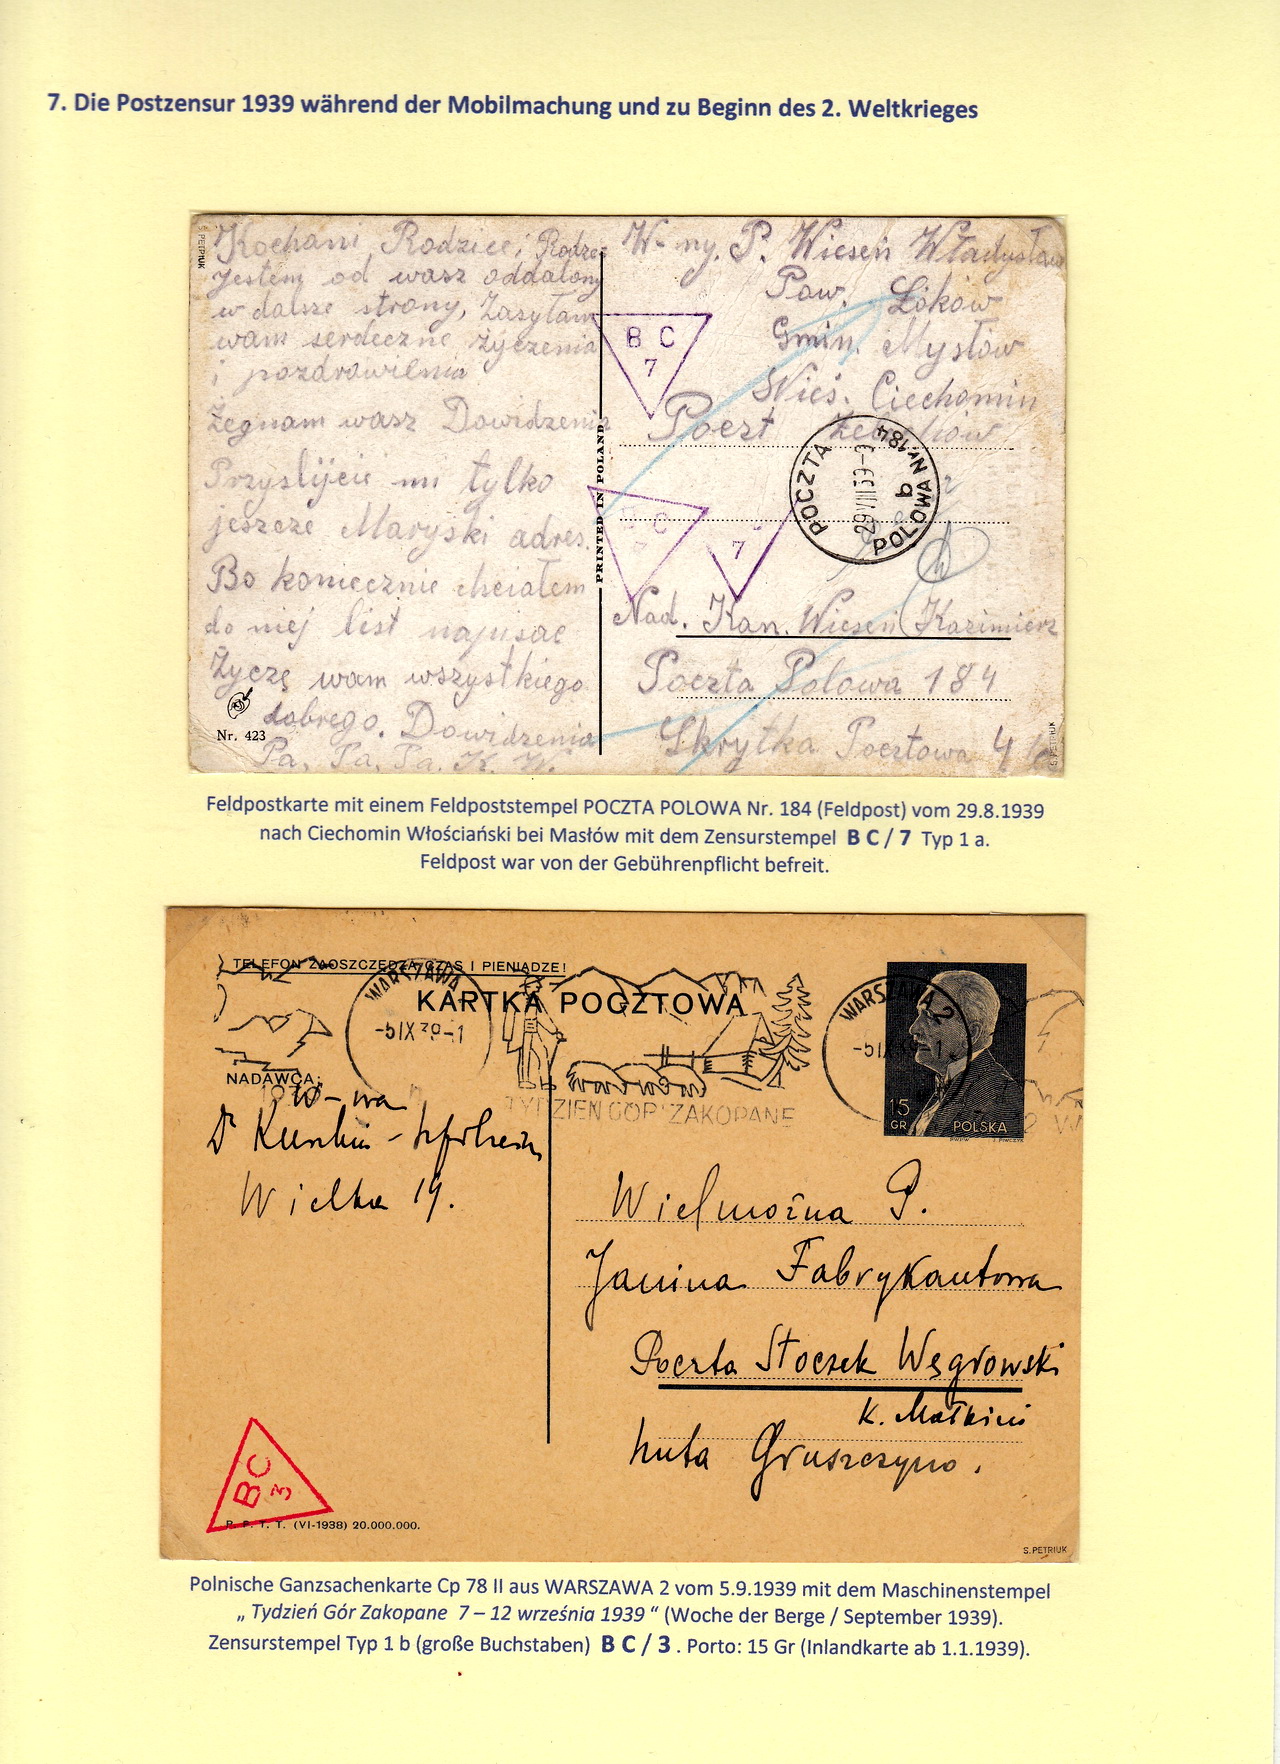 7. Die Postzensur 1939 während der Mobilmachung und zu Beginn des 2. Weltkrieges
S. PETRIUK
Kochani Rodzice, Rodze-
jestem od wasz oddalony
w dalsze strony, Zasyłam
wam serdeczne życzenia
i pozdrowilnia
Żegnam wasz Dowidzenia
Przyslijcie mi tylko
jeszcze Maryśki adres.
Bo koniecznie chciałem
do niej list napisac
Życzę wam wszystkiego
dobrego. Dowidzenia
Pa, Pa, Pa. K. W.
Nr. 423
PRINTED IN POLAND
W-ny. P. Wiesen Władysław
Paw. Łoków
Gmin. Mysłow
Wieś. Ciechomin
Poczt Żelechów
B C
7
B C
7
7
POCZTA POLOWA Nr 184
29 VIII 39
b
Nad. Kan. Wiesen Kazimierz
Poczta Polowa 184
Skrytka Pocztowa 4
S. PETRIUK
Feldpostkarte mit einem Feldpoststempel POCZTA POLOWA Nr. 184 (Feldpost) vom 29.8.1939
nach Ciechomin Włościański bei Masłów mit dem Zensurstempel B C / 7 Typ 1 a.
Feldpost war von der Gebührenpflicht befreit.
TELEFON ZAOSZCZĘDZA CZAS I PIENIĄDZE!
KARTKA POCZTOWA
WARSZAWA
-5 IX 39-1
WARSZAWA 2
-5 IX 39-1
TYDZIEŃ GÓR ZAKOPANE
15
GR
POLSKA
NADAWCA:
W-wa
Dr
Wielka 14.
Wielmożna P.
Janina Fabrykantowa
Poczta Stoczek Węgrowski
k. Małkini
huta Gruszczyno.
BC
3
P. P. T. T. (VI-1938) 20.000.000.
S. PETRIUK
Polnische Ganzsachenkarte Cp 78 II aus WARSZAWA 2 vom 5.9.1939 mit dem Maschinenstempel
„ Tydzień Gór Zakopane 7 – 12 września 1939 “ (Woche der Berge / September 1939).
Zensurstempel Typ 1 b (große Buchstaben) B C / 3 . Porto: 15 Gr (Inlandkarte ab 1.1.1939).